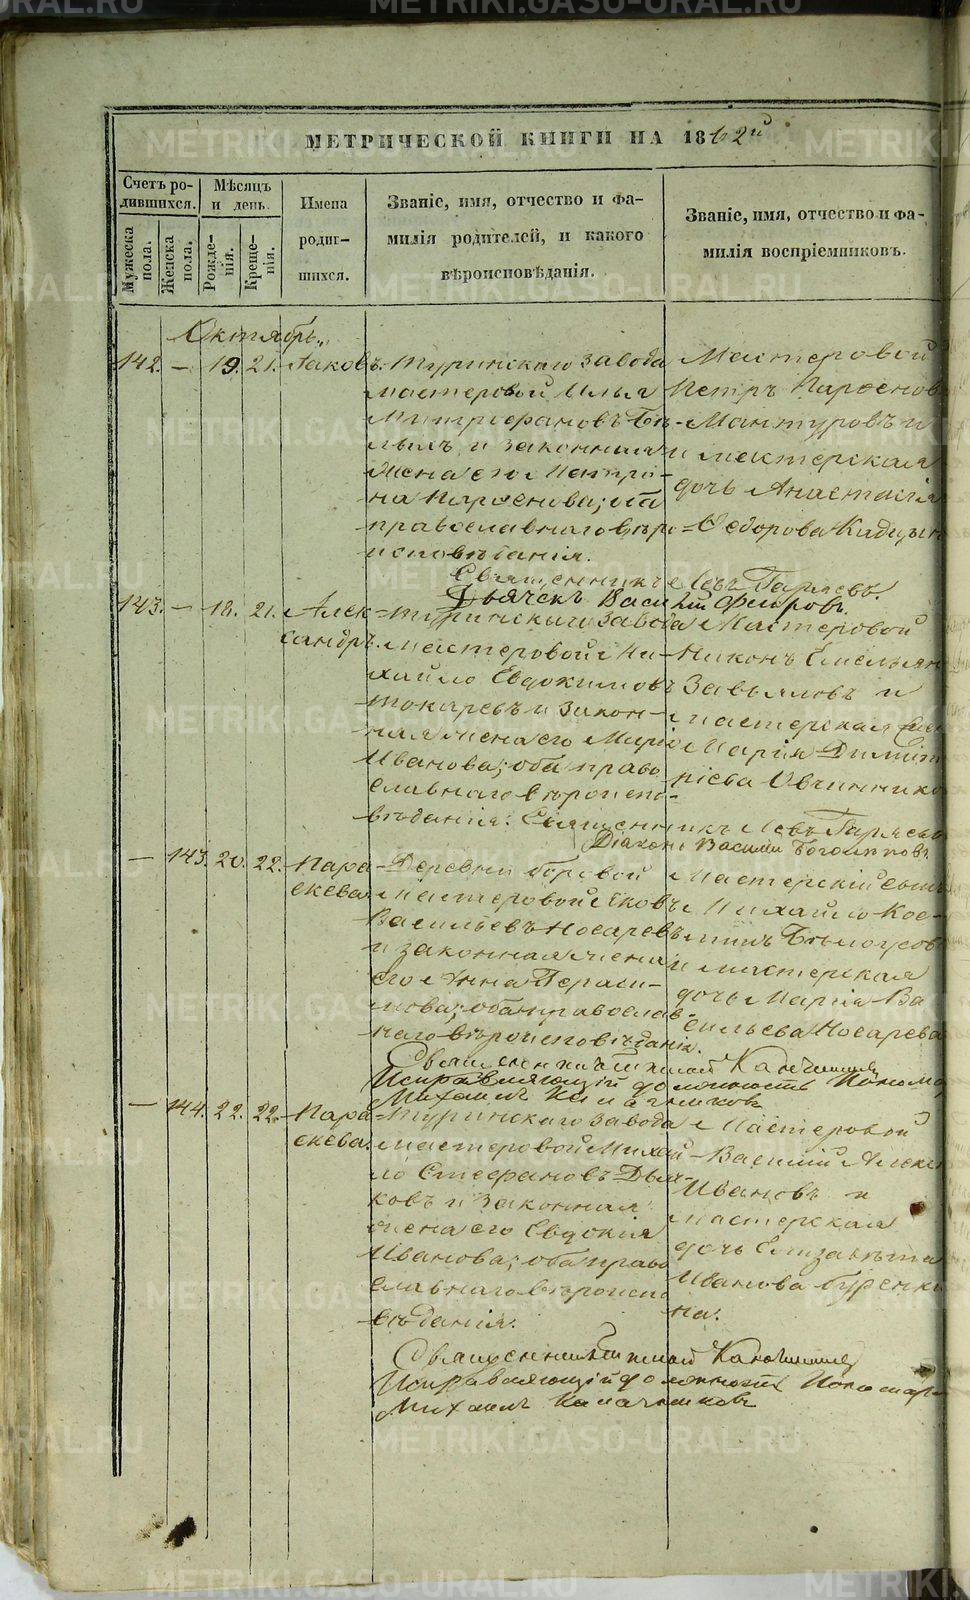 МЕТРИЧЕСКОЙ КНИГИ НА 1862й
Счетъ ро-
дившихся.
Мѣсяцъ
и день.
Имена
родив-
шихся.
Званіе, имя, отчество и фа-
милія родителей, и какого
вѣроисповѣданія.
Званіе, имя, отчество и фа-
милія воспріемниковъ.
Мужеска
пола.
Женска
пола.
Рожде-
нія.
Креще-
нія.
Октябрь
142. — 19. 21. Іаковъ.
Туринскаго завода
мастеровой Илья
Митрофановъ Бѣ-
лыхъ и законная
жена его
Парѳенова; оба
православнаго вѣро-
исповѣданія.
Мастеровой
Петръ Парѳеновъ
Мантуровъ и
мастерская
дочь Анастасія
Ѳедорова
Священникъ Левъ Гаряевъ.
Дьячекъ Василій Флоровъ.
143. — 18. 21. Алек-
сандръ.
Туринскаго завода
мастеровой Ми-
хайло Евдокимовъ
Токаревъ и закон-
ная жена его Марія
Иванова; оба право
славнаго вѣроиспо-
вѣданія.
Мастеровой
Никонъ Емельян
Завьяловъ и
мастерская
Марія Димит
ріева Овчиннико
Священникъ Левъ Гаряевъ
Діаконъ Василій
— 143. 20. 22. Пара-
скева.
Деревни Боровой
мастеровой Яковъ
Васильевъ Носаревъ
и законная жена
его Анна Гераси-
мова; оба православ-
наго вѣроисповѣданія.
Мастерскій сынъ
Михайло Кос-
минъ Бѣлоусов
и мастерская
дочь Марія Ва
сильева Носарева
Священникъ
Исправляющій должность Поном
Михаилъ
— 144. 22. 22. Пара-
скева.
Туринскаго завода
мастеровой Михай-
ло Стефановъ Дья-
ковъ и законная
жена его Евдокія
Иванова; оба право
славнаго вѣроиспо
вѣданія.
Мастеровой
Василій Алекс
Ивановъ и
мастерская
дочь Елизавета
Иванова Буренки
на.
Священникъ
Исправляющій должность Пономар
Михаилъ
METRIKI.GASO-URAL.RU